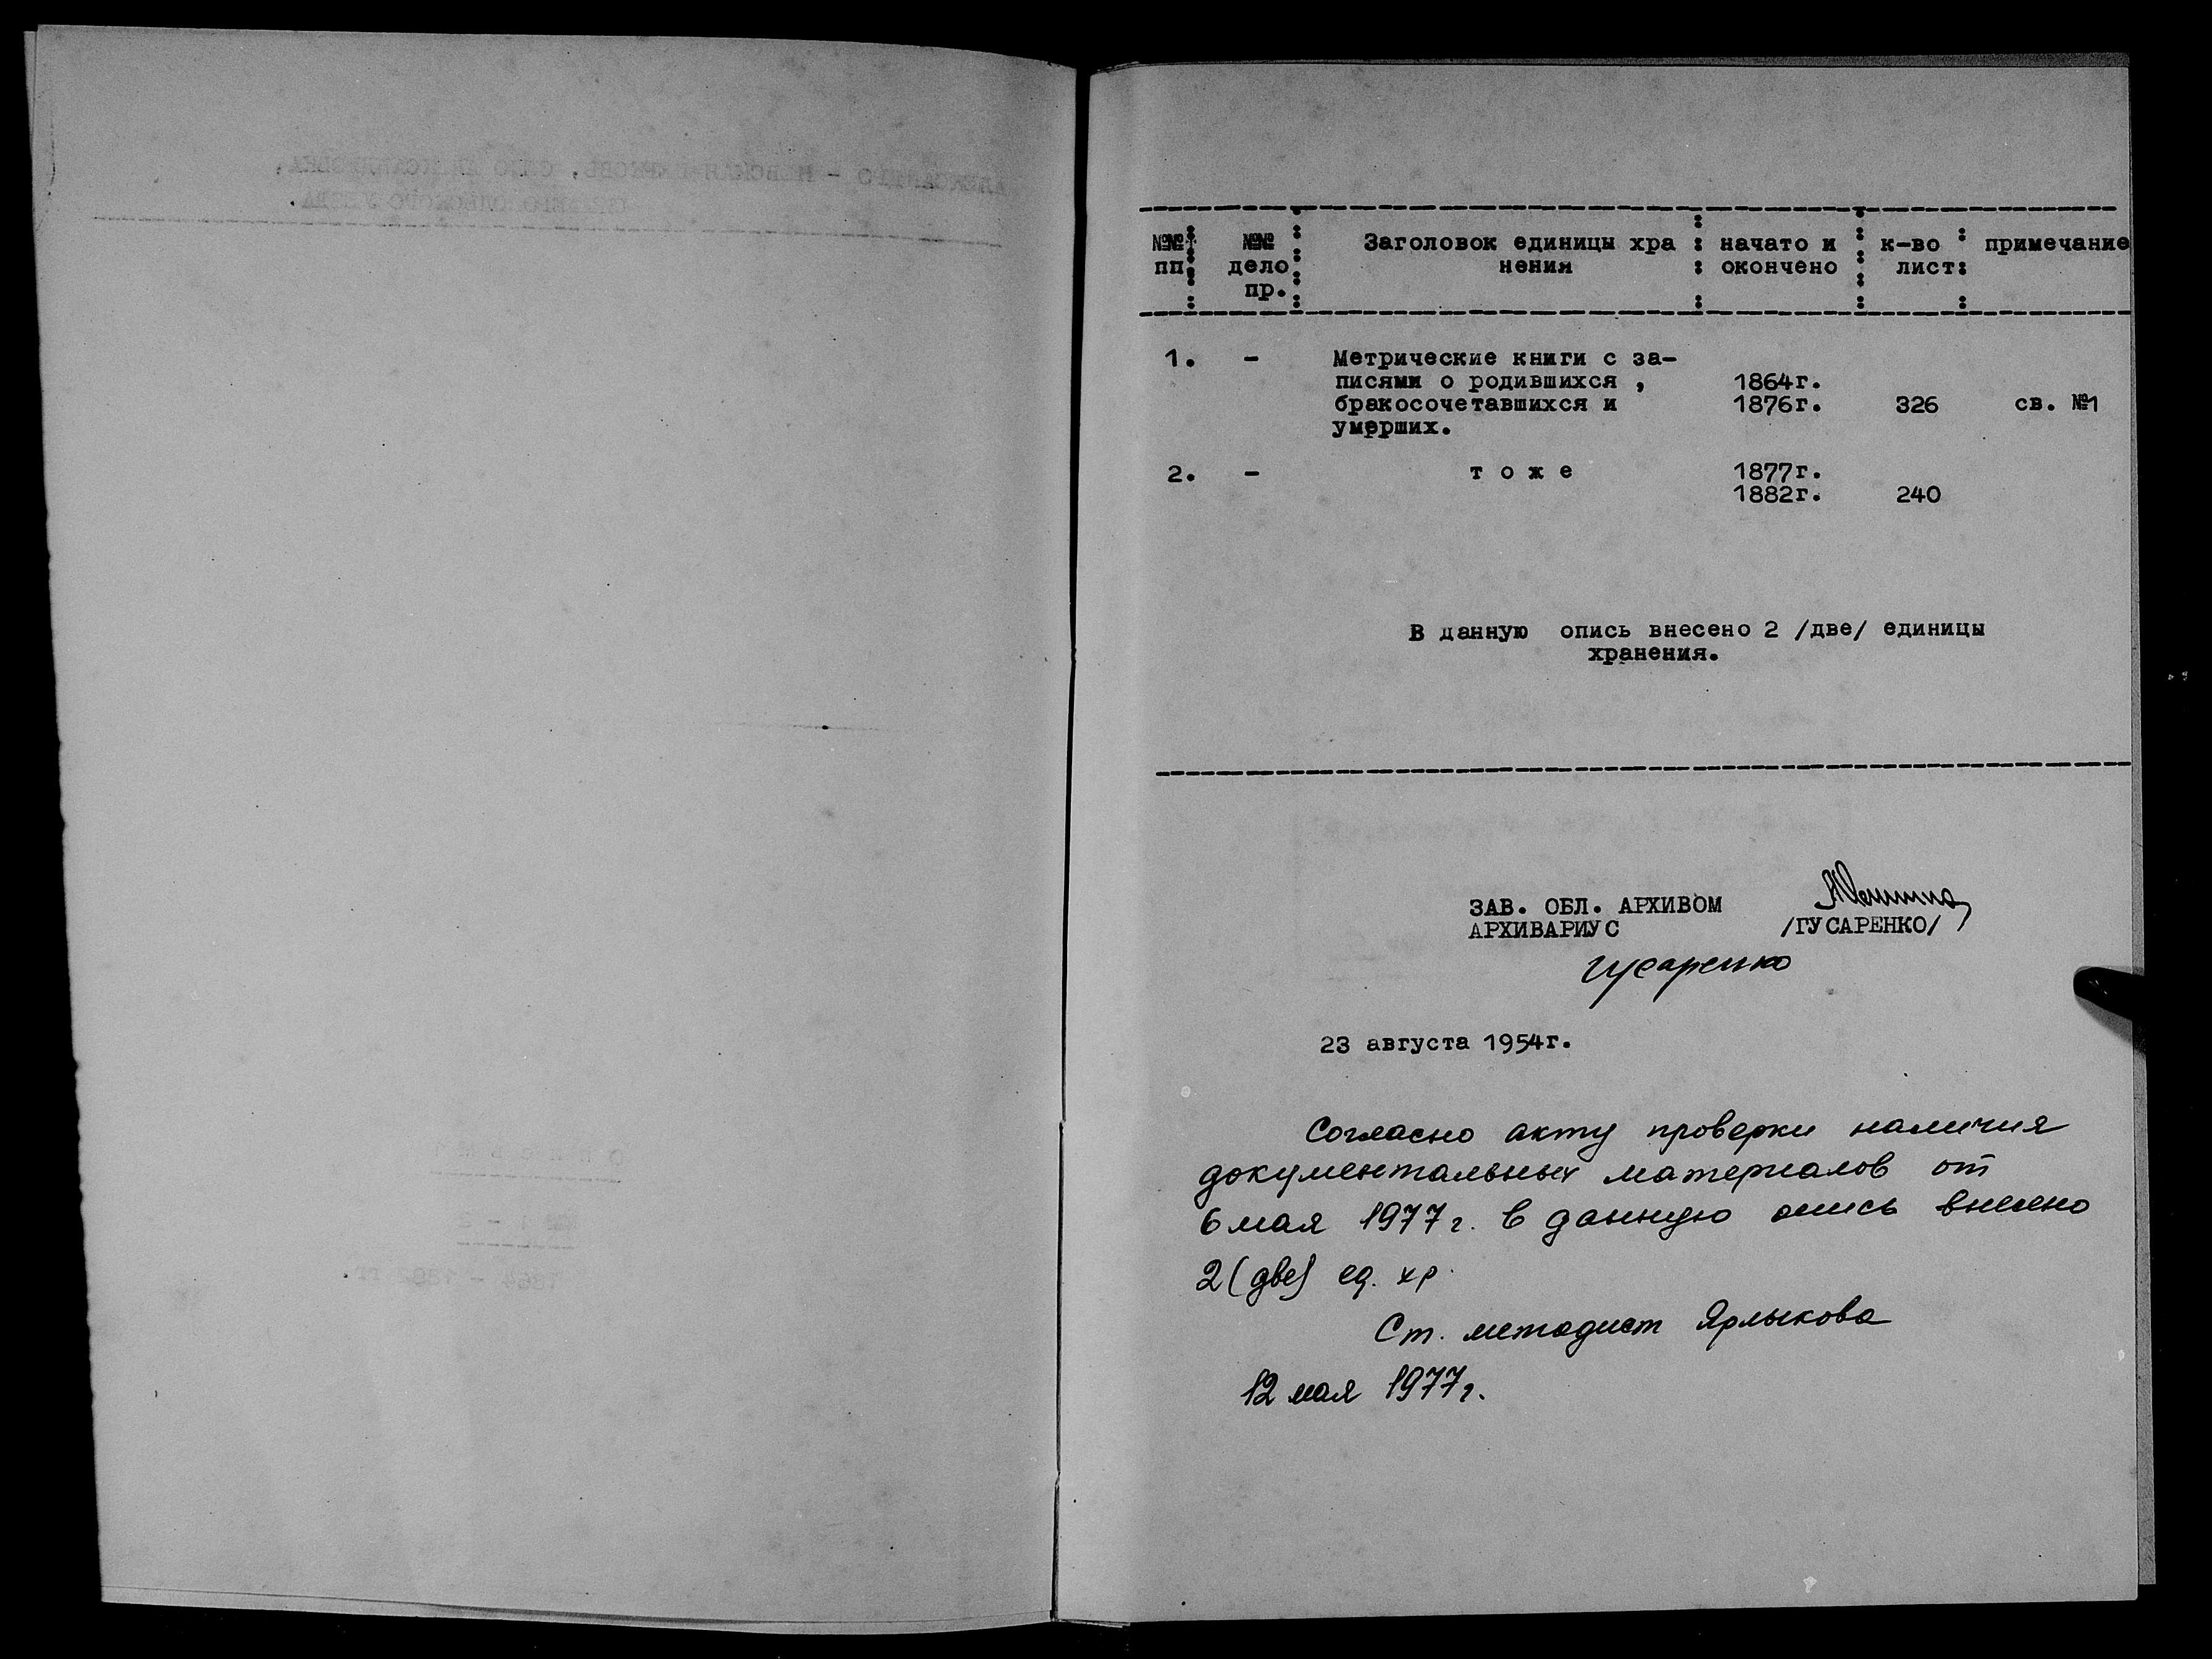 №№ №№ Заголовок единицы хра начато и к-во примечание
пп дело нения окончено лист
пр.
1. - Метрические книги с за-
писями о родившихся , 1864г.
бракосочетавшихся и 1876г. 326 св. №1
умерших.
2. - т о ж е 1877г.
1882г. 240
В данную опись внесено 2 /две/ единицы
хранения.
ЗАВ. ОБЛ. АРХИВОМ
АРХИВАРИУС /ГУСАРЕНКО/
Гусаренко
23 августа 1954г.
Согласно акту проверки наличия
документальных материалов от
6 мая 1977г. в данную опись внесено
2 (две) ед. хр.
Ст. методист Ярлыкова
12 мая 1977г.